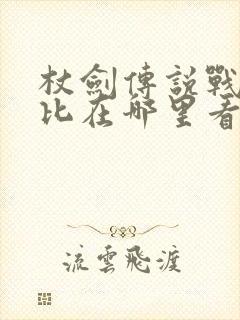 杖劍傳說戰
比在哪里看
流雲飛渡